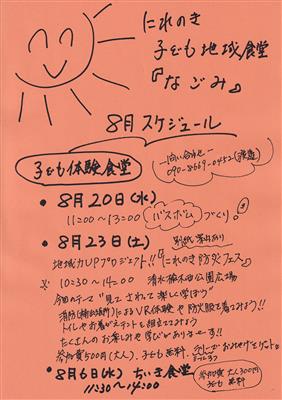 にれのき
子ども地域食堂
『なごみ』
8月スケジュール
子ども体験食堂
―問い合わせ―
・8月20日(水)
11:00~13:00 バスボムづくり
・8月23日(土) 別紙
地域力UPプロジェクト!!『にれのき防災フェス』
※ 10:30~14:00 清水 公園広場
今回のテーマ "見て さわって 楽しく学ぼう"
消防 によるVR体験や防火服を着てみよう!!
トイレやお着がえテントも組立てみよう
たくさんのお楽しみや学びがありまーす!!
参加費500円(大人)、子ども無料
・8月6日(水) ちいき食堂
11:30~14:00
参加費 大人300円
子ども 無料